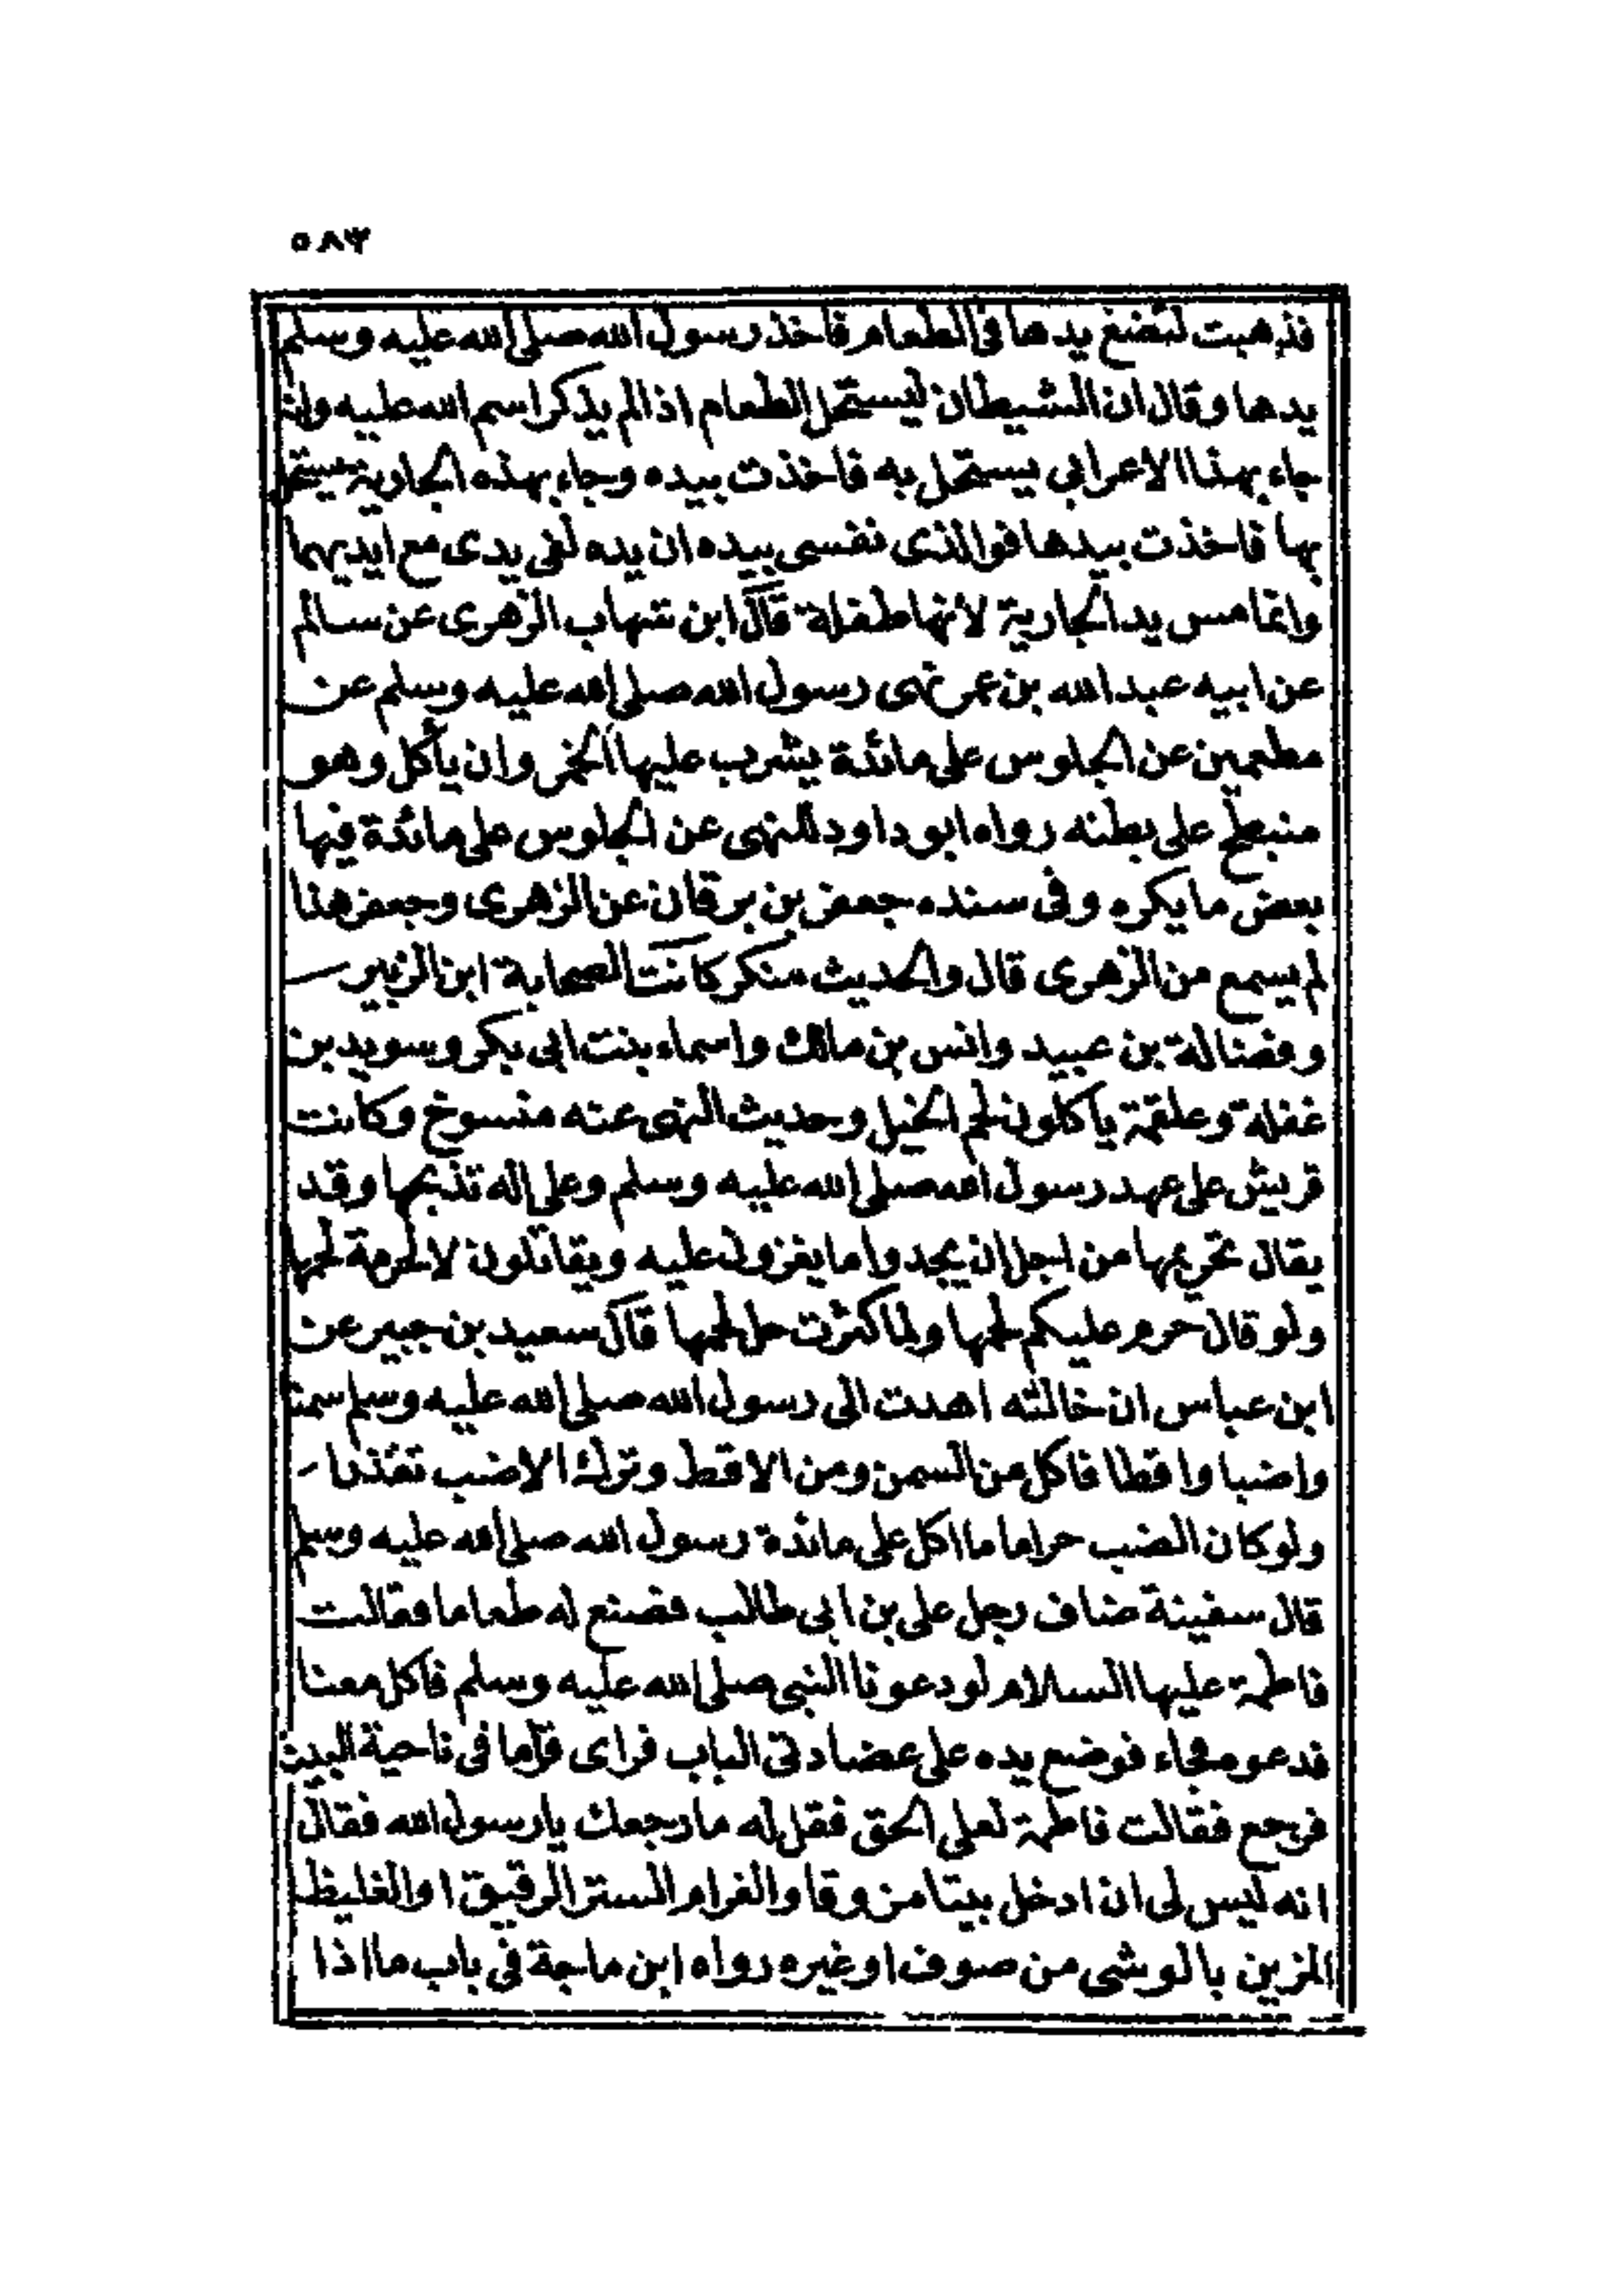 ٥٨٣
فذهبت لتضع يدها فى الطعام فاخذ رسول الله صلى الله عليه وسلم
يدها وقال ان الشيطان ليستحل الطعام اذا لم يذكر اسم الله عليه وانه
جاء بهذا الاعرابى يستحل به فاخذت بيده وجاء بهذه الجارية يستحل
بها فاخذت بيدها فوالذى نفسى بيده ان يده لفى يدى مع ايديهما
وانما مس يد الجارية لانها طفلة قال ابن شهاب الزهرى عن سالم
عن ابيه عبد الله بن عمر نهى رسول الله صلى الله عليه وسلم عن
مطعمين عن الجلوس على مائدة يشرب عليها الخمر وان يأكل وهو
منبطح على بطنه رواه ابو داود للنهى عن الجلوس على مائدة فيها
بعض ما يكره وفى سنده جعفر بن برقان عن الزهرى وجعفر هذا
لم يسمع من الزهرى قال والحديث منكر كانت الصحابة ابن الزبير
وفضالة بن عبيد وانس بن مالك واسماء بنت ابى بكر وسويد بن
غفلة وعلقمة يأكلون لحم الخيل وحديث النهى عنه منسوخ وكانت
قريش على عهد رسول الله صلى الله عليه وسلم وعلى اله تذبحها وقد
يقال تحريمها من اجل ان يجدوا ما يغزون عليه ويقاتلون لا لحرمة لحمها
ولو قال حرم عليكم لحمها ولما كثرت حل لحمها قال سعيد بن جبير عن
ابن عباس ان خالته اهدت الى رسول الله صلى الله عليه وسلم سمنا
واضبا واقطا فاكل من السمن ومن الاقط وترك الاضب تقذرا
ولو كان الضب حراما ما اكل على مائدة رسول الله صلى الله عليه وسلم
قال سفينة ضاف رجل على بن ابى طالب فصنع له طعاما فقالت
فاطمة عليها السلام لو دعونا النبى صلى الله عليه وسلم فاكل معنا
فدعوه فجاء فوضع يده على عضادتى الباب فراى قراما فى ناحية البيت
فرجع فقالت فاطمة لعلى الحق فقل له ما رجعك يا رسول الله فقال
انه ليس لى ان ادخل بيتا مزوقا والقرام الستر الرقيق او الغليظ
المزين بالوشى من صوف او غيره رواه ابن ماجة فى باب ما اذا